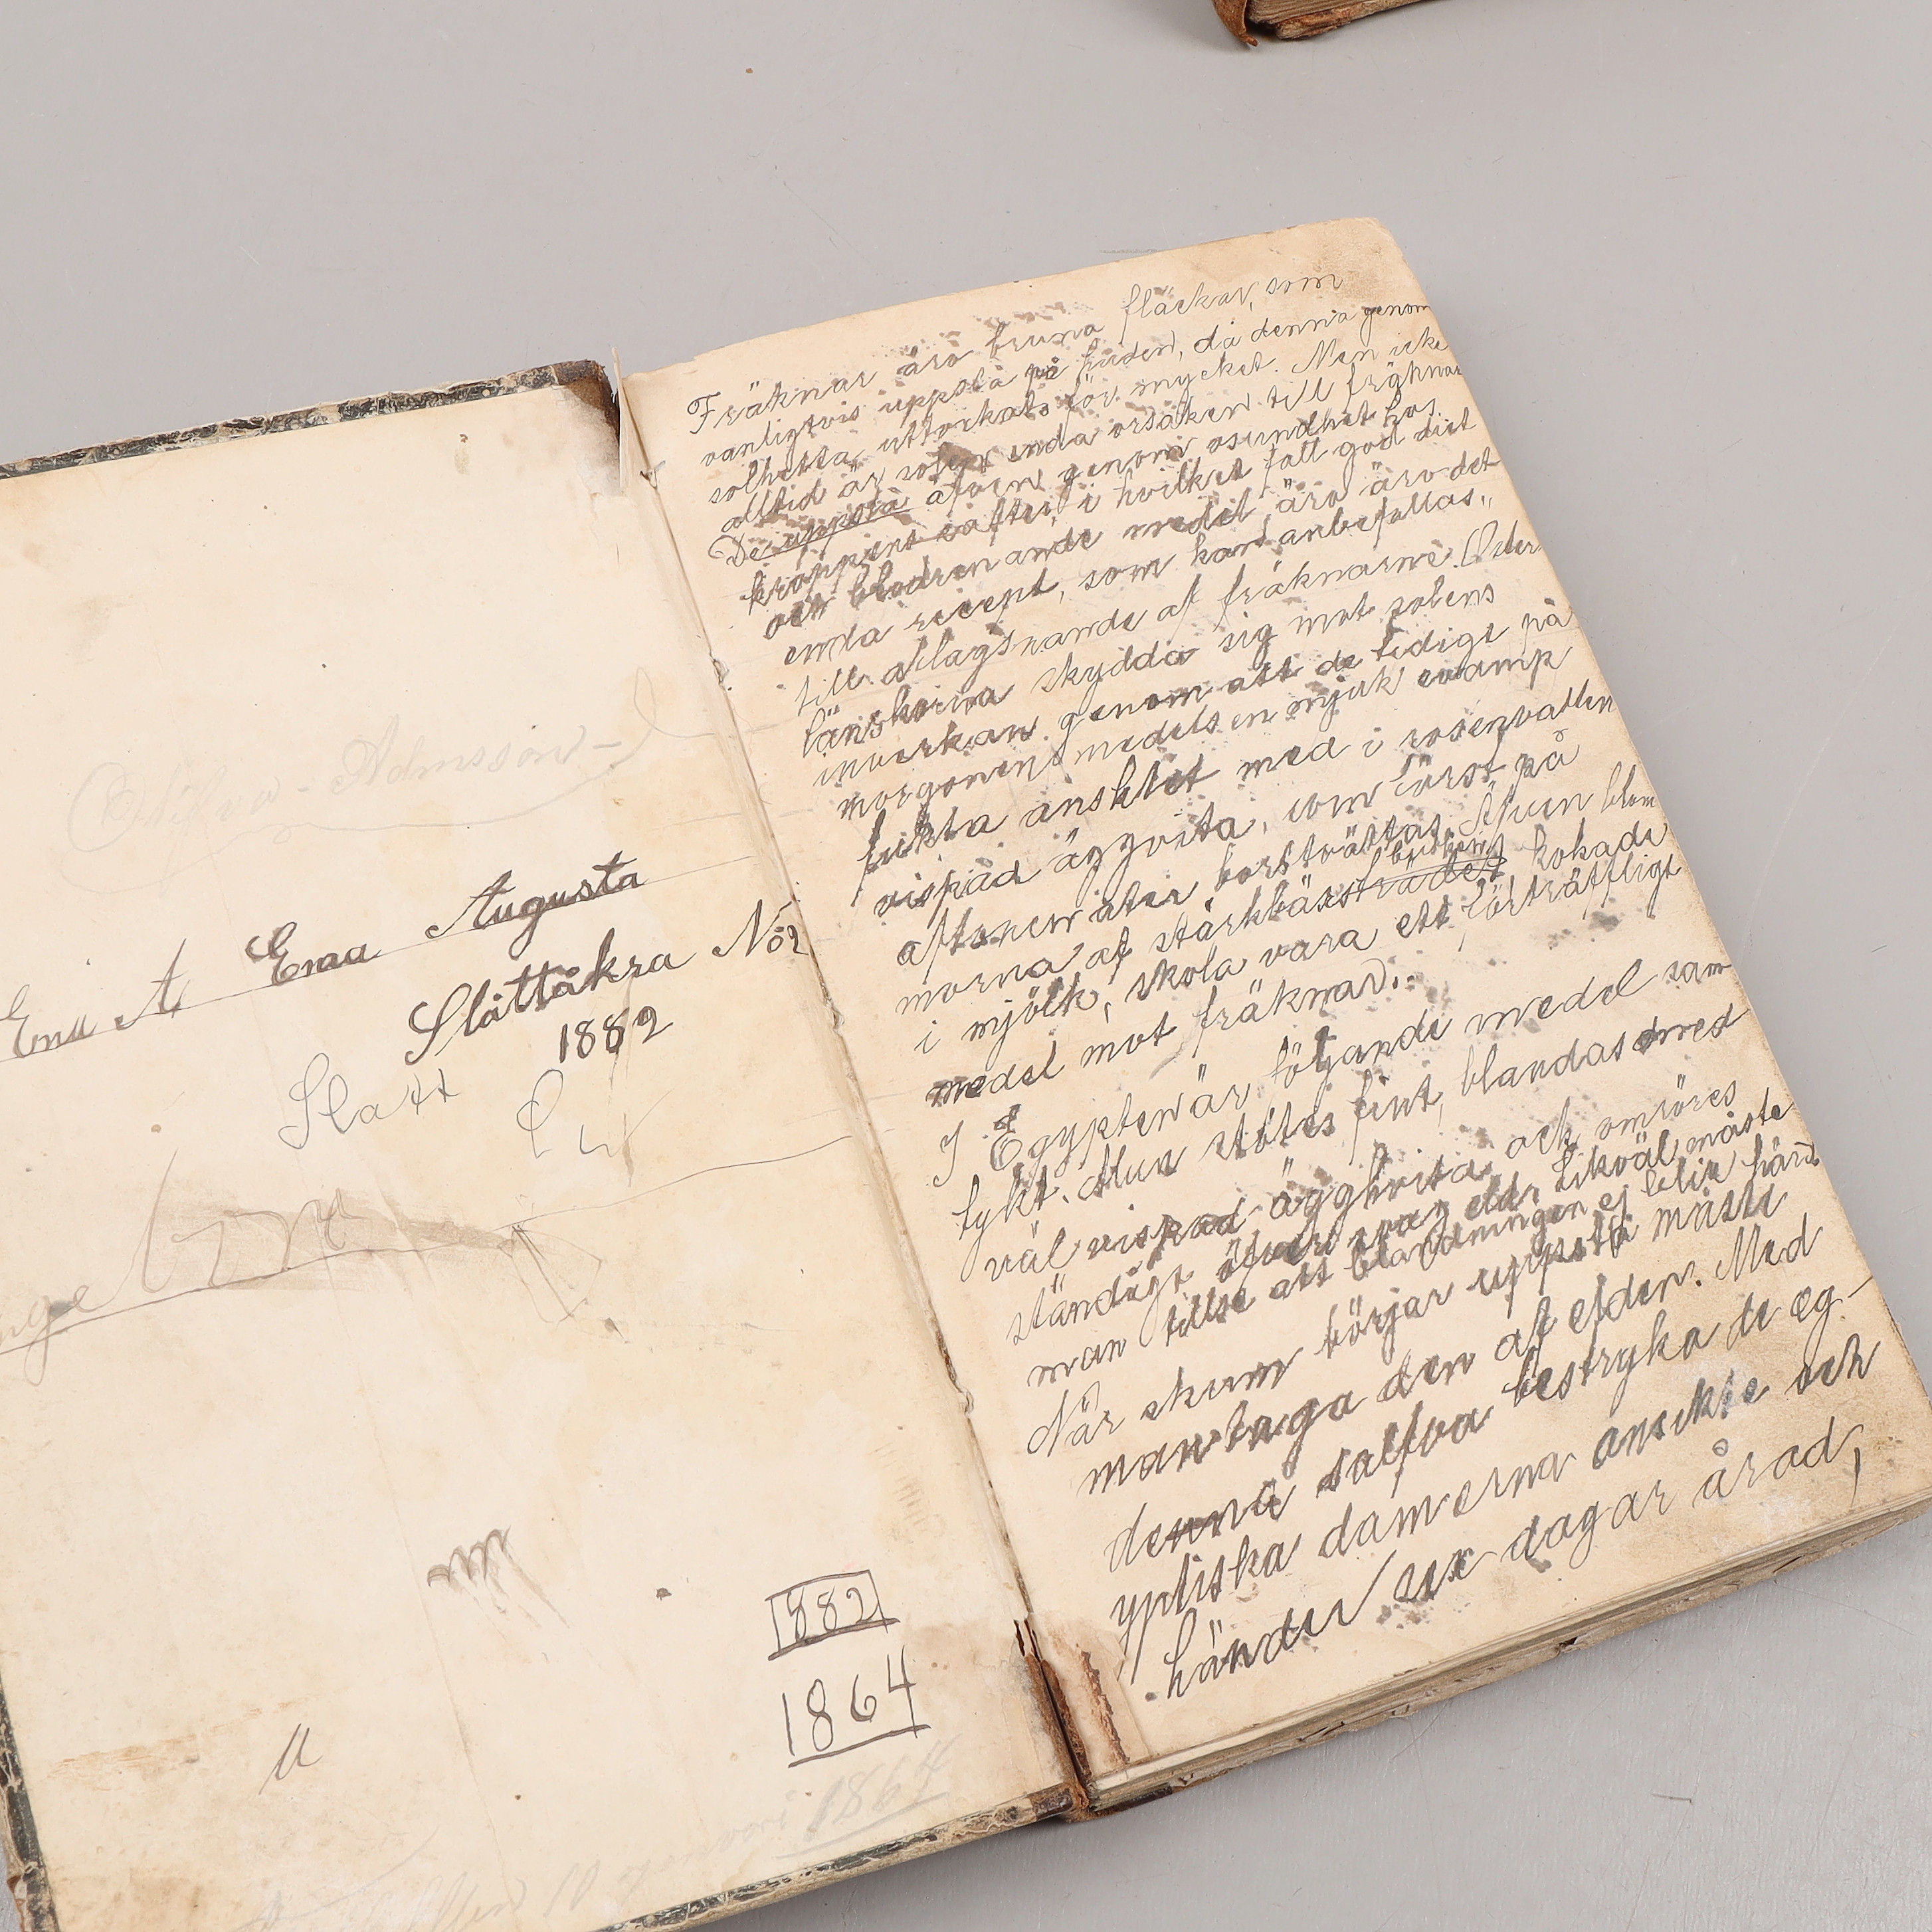 Adamsson
Ema A Emma Augusta
Slättåkra No2
1882
Slatt
1882
1864
Fräknar äro bruna fläckar, som
vanligtvis uppstå på huden, då denna genom
solhetta uttorkats för mycket. Men icke
alltid är solen enda orsaken till fräknar
De uppstå äfven genom osundhet hos
kroppens safter, i hvilket fall god diet
och blodrenande medel äro äro det
enda recept, som kan anbefallas.
till aflägsnande af fräknarne. Öster
länskorna skydda sig mot solens
inverkan genom att de tidigt på
morgonen medels en mjuk svamp
fukta ansiktet med i rosenvatten
vispad äggvita, som först på
aftonen åter borttvättas. Äfven blom
morna af stärkbärs trädet kokade
i mjölk, skola vara ett förträffligt
medel mot fräknar.
I Egypten är följande medel sam
tykt. Alun stötes fint, blandas med
väl vispad ägghvita och omröres
ständigt öfver svag eld. Likväl måste
man tillse att blandningen ej blir hård
När skum börjar uppstå måste
man taga den af elden. Med
denna salfva bestryka de eg-
yptiska damerna ansikte och
händer sex dagar å rad,